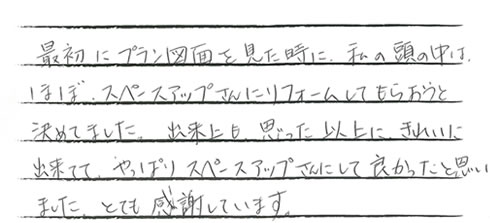 最初にプラン図面を見た時に、私の頭の中は、
ほぼ、スペースアップさんにリフォームしてもらおうと
決めてました。出来上も思った以上に、きれいに
出来てて、やっぱりスペースアップさんにして良かったと思い
ました とても感謝しています。